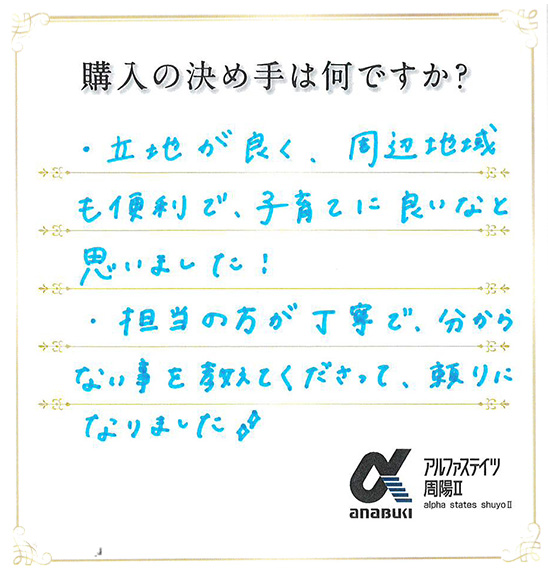 購入の決め手は何ですか?
・立地が良く、周辺地域
も便利で、子育てに良いなと
思いました!
・担当の方が丁寧で、分から
ない事を教えてくださって、頼りに
なりました
アルファステイツ
周陽II
alpha states shuyo II
anabuki